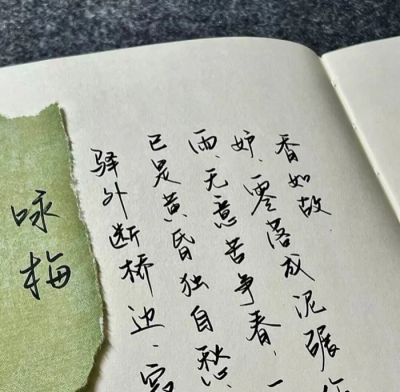 咏梅
驿外断桥边,
已是黄昏独自愁
雨.无意苦争春,一
妒.零落成泥碾作
香如故.